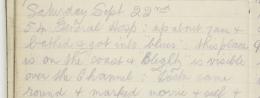 Saturday Sept 22nd
54 General Hosp: up about 7am &
bathed & got into blues: this place
is on the coast & Blighty is visible
over the Channel: Docts came
round & marked movie & self &